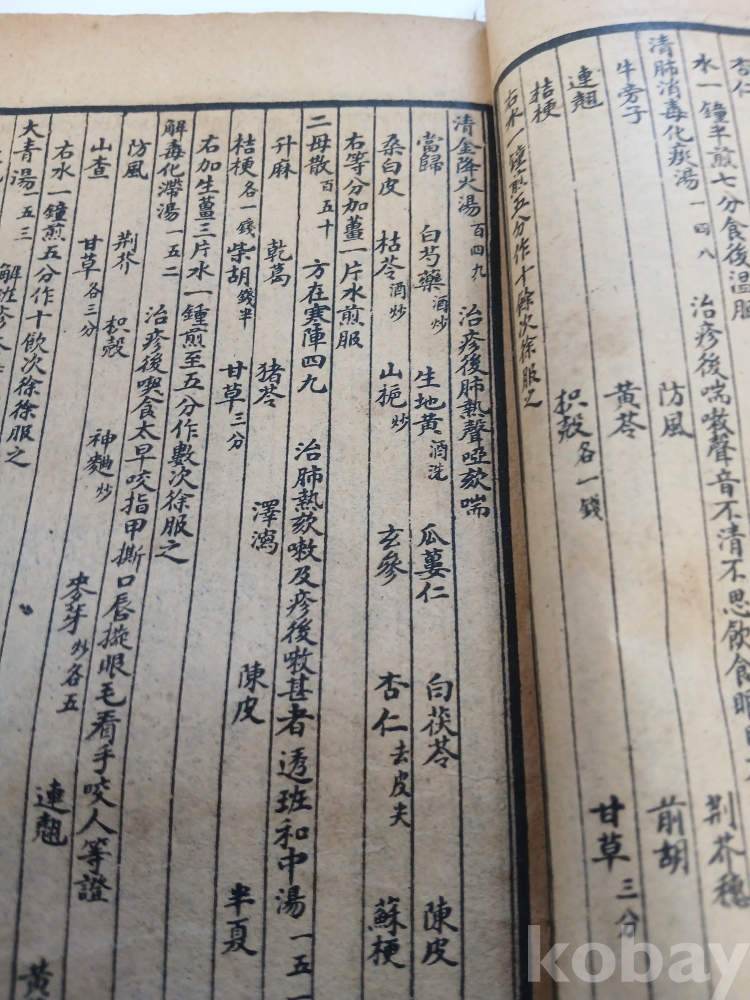 杏仁
水一鐘半煎七分食後溫服 荆芥穗
清肺消毒化痰湯一四八 治疹後喘嗽聲音不清不思飲食眼
牛旁子 防風 前胡
連翹 黃芩 甘草三分
桔梗 枳殼各一錢
右水一鐘煎五分作十餘次徐服之
清金降火湯百四九 治疹後肺熱聲啞欬喘
當歸 白芍藥酒炒 生地黃酒洗 瓜蔞仁 白茯苓 陳皮
桑白皮 枯芩酒炒 山梔炒 玄參 杏仁去皮尖 蘇梗
右等分加薑一片水煎服
二母散百五十 方在寒陣四九 治肺熱欬嗽及疹後嗽甚者 透班和中湯一五一
升麻 乾葛 猪苓 澤瀉 陳皮 半夏
桔梗各一錢 柴胡錢半 甘草三分
右加生薑三片水一鍾煎至五分作數次徐服之
解毒化滯湯一五二 治疹後喫食太早咬指甲撕口唇撏眼毛看手咬人等證
防風 荆芥 枳殼 神麯炒 麥芽炒各五 連翹 黃
山查 甘草各三分
右水一鐘煎五分作十飲次徐徐服之
大青湯一五三 解班疹